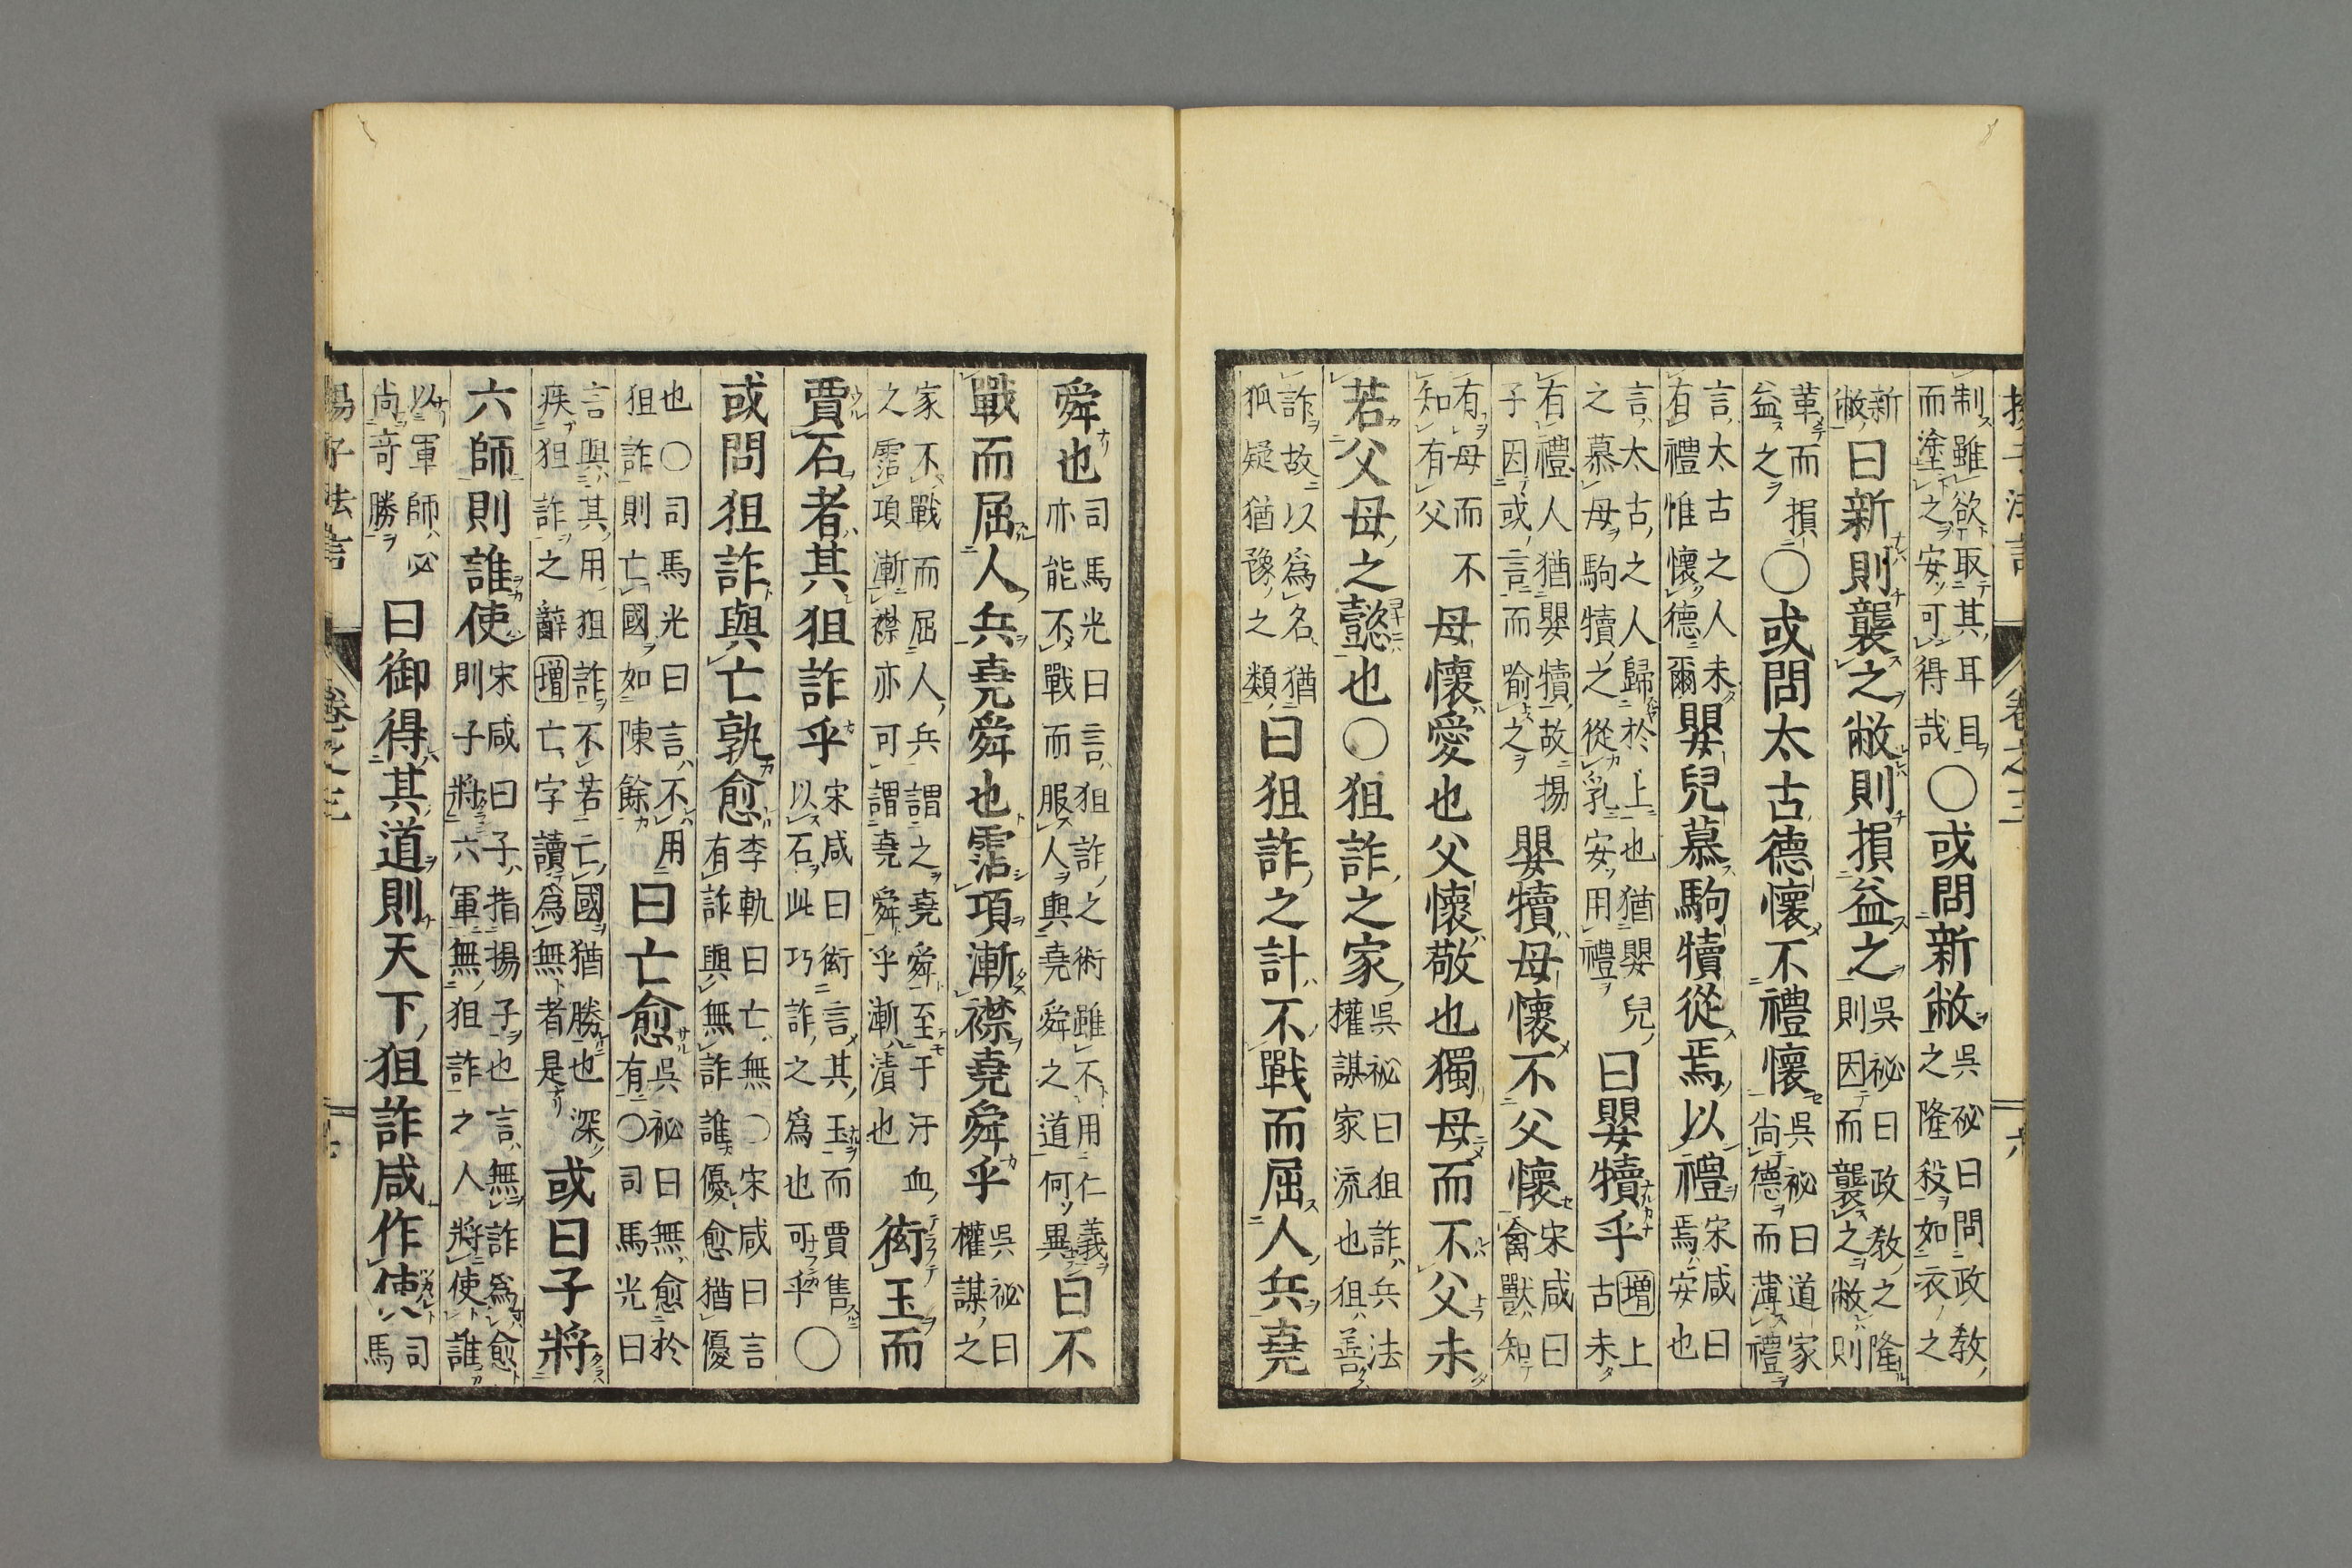 揚子法言 卷之三 六
制雖欲取其耳目而塗之安可得哉○或問新敝吳祕曰問政教之隆殺如衣之
新敝曰新則襲之敝則損益之吳祕曰政教之隆則因而襲之敝則
革而損益之○或問太古德懷不禮懷吳祕曰道家尚德而薄禮
言太古之人未有禮惟懷德爾嬰兒慕駒犢從焉以禮宋咸曰焉安也
言太古之人歸於上也猶嬰兒之慕母駒犢之從乳安用禮曰嬰犢乎增上古未
有禮人猶嬰犢故揚子因或言而喻之嬰犢母懷不父懷宋咸曰禽獸知
有母而不知有父母懷愛也父懷敬也獨母而不父未
若父母之懿也○狙詐之家吳祕曰狙詐兵法權謀家流也狙善
詐故以為名猶狐疑猶豫之類曰狙詐之計不戰而屈人兵堯
舜也司馬光曰言狙詐之術雖不用仁義亦能不戰而服人與堯舜之道何異曰不
戰而屈人兵堯舜也霑項漸襟堯舜乎吳祕曰權謀之
家不戰而屈人兵謂之堯舜至于汙血之霑項漸襟亦可謂堯舜乎漸漬也衒玉而
賈石者其狙詐乎宋咸曰衒言其玉而賈售以石此巧詐之為也可乎○
或問狙詐與亡孰愈李軌曰亡無○宋咸曰言有詐與無詐誰優愈猶優
也○司馬光曰言不用狙詐則亡國如陳餘曰亡愈吳祕曰無愈於有○司馬光曰
言與其用狙詐不若亡國猶勝也深疾狙詐之辭增亡字讀為無者是或曰子將
六師則誰使宋咸曰子指揚子也言無詐為愈則子將六軍無狙詐之人將使誰
以軍師必尚奇勝曰御得其道則天下狙詐咸作使司馬
揚子法言 卷之三